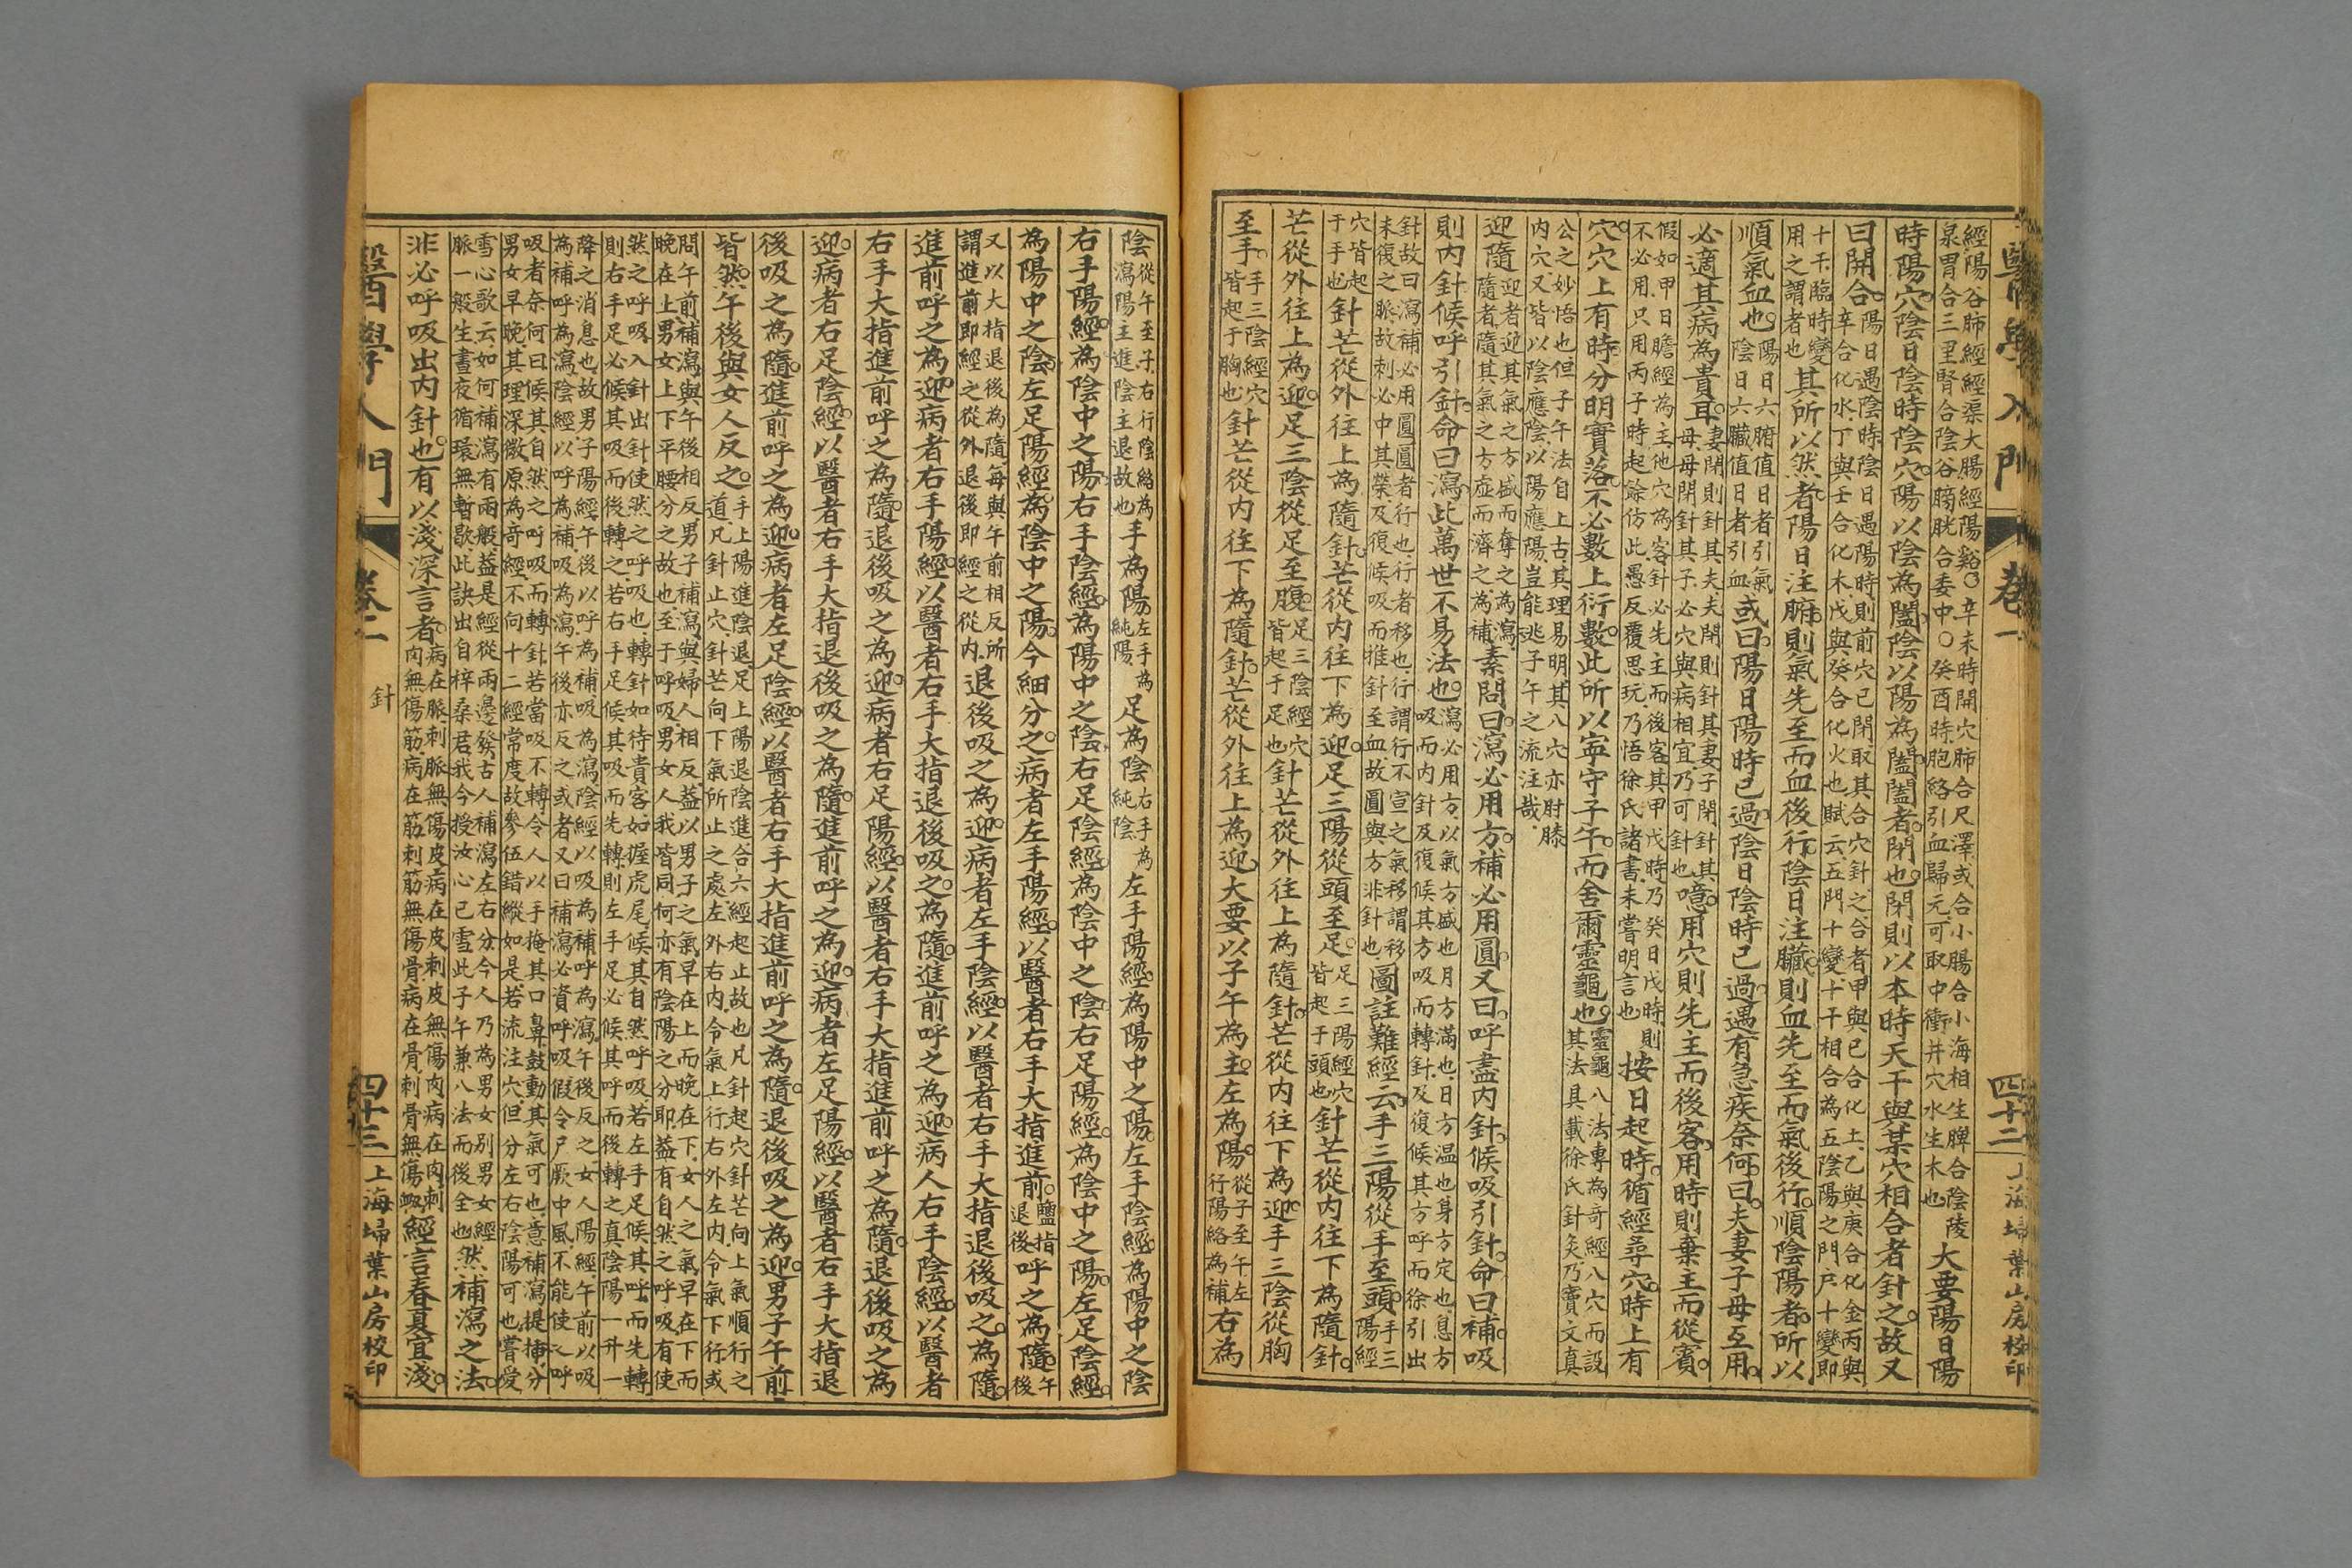 醫學入門 卷一 四十二 上海埽葉山房校印
經陽谷肺經經渠大腸經陽谿○辛未時開穴肺合尺澤或合小腸合小海相生脾合陰陵
泉胃合三里腎合陰谷膀胱合委中○癸酉時胞絡引血歸元可取中衝井穴水生木也
大要陽日陽
時陽穴陰日陰時陰穴陽以陰為闔陰以陽為闔闔者閉也閉則以本時天干與某穴相合者針之故又
曰開合
陽日遇陰時陰日遇陽時則前穴已閉取其合穴針之合者甲與已合化土乙與庚合化金丙與
辛合化水丁與壬合化木戊與癸合化火也賦云五門十變十干相合為五陰陽之門戶十變即
十干臨時變
用之謂者也
其所以然者陽日注腑則氣先至而血後行陰日注臟則血先至而氣後行順陰陽者所以
順氣血也
陽日六腑值日者引氣
陰日六臟值日者引血
或曰陽日陽時已過陰日陰時已過遇有急疾奈何曰夫妻子母互用
必適其病為貴耳
妻閉則針其夫夫閉則針其妻子閉針其
母母閉針其子必穴與病相宜乃可針也
噫用穴則先主而後客用時則棄主而從賓
假如甲日膽經為主他穴為客針必先主而後客其甲戊時乃癸日戊時則
不必用只用丙子時起餘仿此愚反覆思玩乃悟徐氏諸書未嘗明言也
按日起時循經尋穴時上有
穴穴上有時分明實落不必數上衍數此所以寧守子午而舍爾靈龜也
靈龜八法專為奇經八穴而設
其法具載徐氏針灸乃竇文真
公之妙悟也但子午法自上古其理易明其八穴亦肘膝
內穴又皆以陰應陰以陽應陽豈能逃子午之流注哉
迎隨
迎者迎其氣之方盛而奪之為瀉
隨者隨其氣之方虛而濟之為補
素問曰瀉必用方補必用圓又曰呼盡內針候吸引針命曰補吸
則內針候呼引針命曰瀉此萬世不易法也
瀉必用方以氣方盛也月方滿也日方温也身方定也息方
吸而內針及復候其方吸而轉針及復候其方呼而徐引出
針故曰瀉補必用圓圓者行也行者移也行謂行不宣之氣移謂移
未復之脈故刺必中其榮及復候吸而推針至血故圓與方非針也
圖註難經云手三陽從手至頭
手三
陽經
穴皆起
于手也
針芒從外往上為隨針芒從內往下為迎足三陽從頭至足
足三陽經穴
皆起于頭也
針芒從內往下為隨針
芒從外往上為迎足三陰從足至腹
足三陰經穴
皆起于足也
針芒從外往上為隨針芒從內往下為迎手三陰從胸
至手
手三陰經穴
皆起于胸也
針芒從內往下為隨針芒從外往上為迎大要以子午為主左為陽
從子至午左
行陽絡為補
右為
陰
從午至子右行陰絡為
瀉陽主進陰主退故也
手為陽
左手為
純陽
足為陰
右手為
純陰
左手陽經為陽中之陽左手陰經為陽中之陰
右手陽經為陰中之陽右手陰經為陽中之陰右足陰經為陰中之陰右足陽經為陰中之陽左足陰經
為陽中之陰左足陽經為陰中之陽今細分之病者左手陽經以醫者右手大指進前
鹽指
退後
呼之為隨
午
後
又以大指退後為隨每與午前相反所
謂進前即經之從外退後即經之從內
退後吸之為迎病者左手陰經以醫者右手大指退後吸之為隨
進前呼之為迎病者右手陽經以醫者右手大指退後吸之為隨進前呼之為迎病人右手陰經以醫者
右手大指進前呼之為隨退後吸之為迎病者右足陽經以醫者右手大指進前呼之為隨退後吸之為
迎病者右足陰經以醫者右手大指退後吸之為隨進前呼之為迎病者左足陽經以醫者右手大指退
後吸之為隨進前呼之為迎病者左足陰經以醫者右手大指進前呼之為隨退後吸之為迎男子午前
皆然午後與女人反之
手上陽進陰退足上陽退陰進合六經起止故也凡針起穴針芒向上氣順行之
道凡針止穴針芒向下氣所止之處左外右內令氣上行右外左內令氣下行或
問午前補瀉與午後相反男子補瀉與婦人相反蓋以男子之氣早在上而晚在下女人之氣早在下而
晚在上男女上下平腰分之故也至于呼吸男女人我皆同何亦有陰陽之分耶蓋有自然之呼吸有使
然之呼吸入針出針使然之呼吸也轉針如待貴客如握虎尾候其自然呼吸若左手足候其呼而先轉
則右手足必候其吸而後轉之若右手足候其吸而先轉則左手足必候其呼而後轉之真陰陽一升一
降之消息也故男子陽經午後以呼為補吸為瀉陰經以吸為補呼為瀉午後反之女人陽經午前以吸
為補呼為瀉陰經以呼為補吸為瀉午後亦反之或者又曰補瀉必資呼吸假令尸厥中風不能使之呼
吸者奈何曰候其自然之呼吸而轉針若當吸不轉令人以手掩其口鼻鼓動其氣可也意補瀉提插分
男女早晚其理深微原為奇經不何十二經常度故參伍錯縱如是若流注穴但分左右陰陽可也嘗愛
雪心歌云如何補瀉有兩般蓋是經從兩邊發古人補瀉左右分今人乃為男女別男女經
脈一般生晝夜循環無暫歇此訣出自梓桑君我今授汝心已雪此子午兼八法而後全也
然補瀉之法
非必呼吸出內針也有以淺深言者
病在脈刺脈無傷皮病在皮刺皮無傷肉病在肉刺
肉無傷筋病在筋刺筋無傷骨病在骨刺骨無傷
經言春夏宜淺
醫學入門 卷二 針 四十三 上海埽葉山房校印